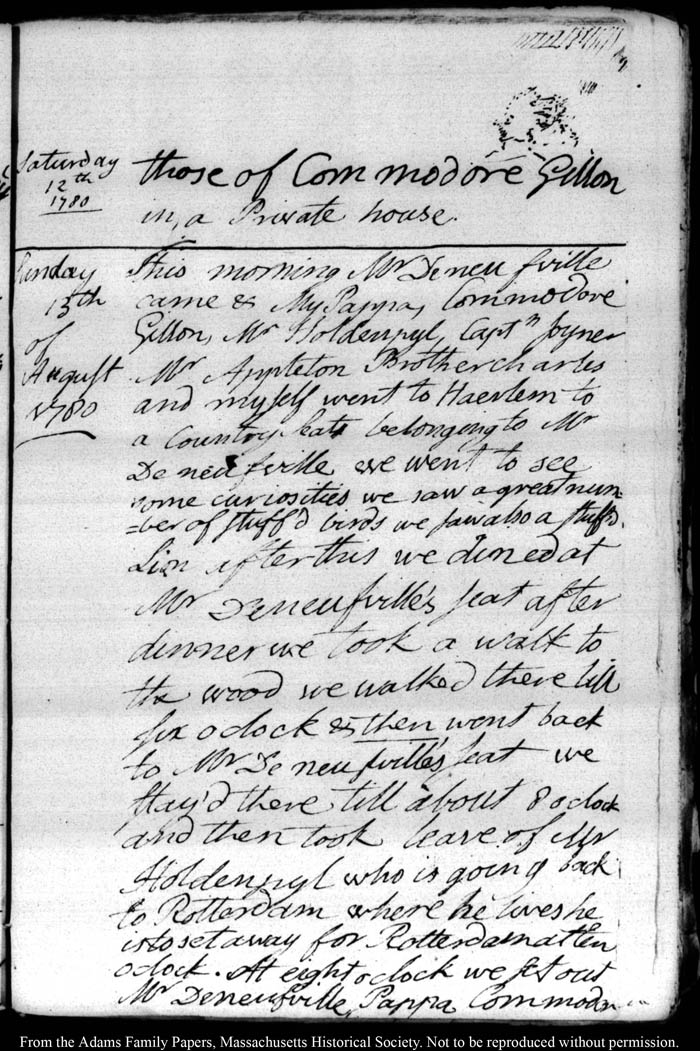 Saturday
12th
1780
those of Commodore Gillon
in, a Private house.
Sunday
13th
of
August
1780
This morning Mr Deneufville
came & My Pappa, Commodore
Gillon, Mr Holdenpyl, Captn Joyner
Mr Appleton Brother charles
and myself went to Haerlem to
a Country seat belonging to Mr
De neufville we went to see
some curiosities we saw a great num
=ber of stuff'd birds we saw also a stuff'd
Lion after this we dined at
Mr Deneufville's seat after
dinner we took a walk to
the wood we walked there till
six o clock & then went back
to Mr De neufville's seat we
stay'd there till about 8 o clock
and then took leave of Mr
Holdenpyl who is going back
to Rotterdam where he lives he
is to set away for Rotterdam at ten
o clock. At eight o clock we set out
Mr Deneufville, Pappa Commodo
From the Adams Family Papers, Massachusetts Historical Society. Not to be reproduced without permission.